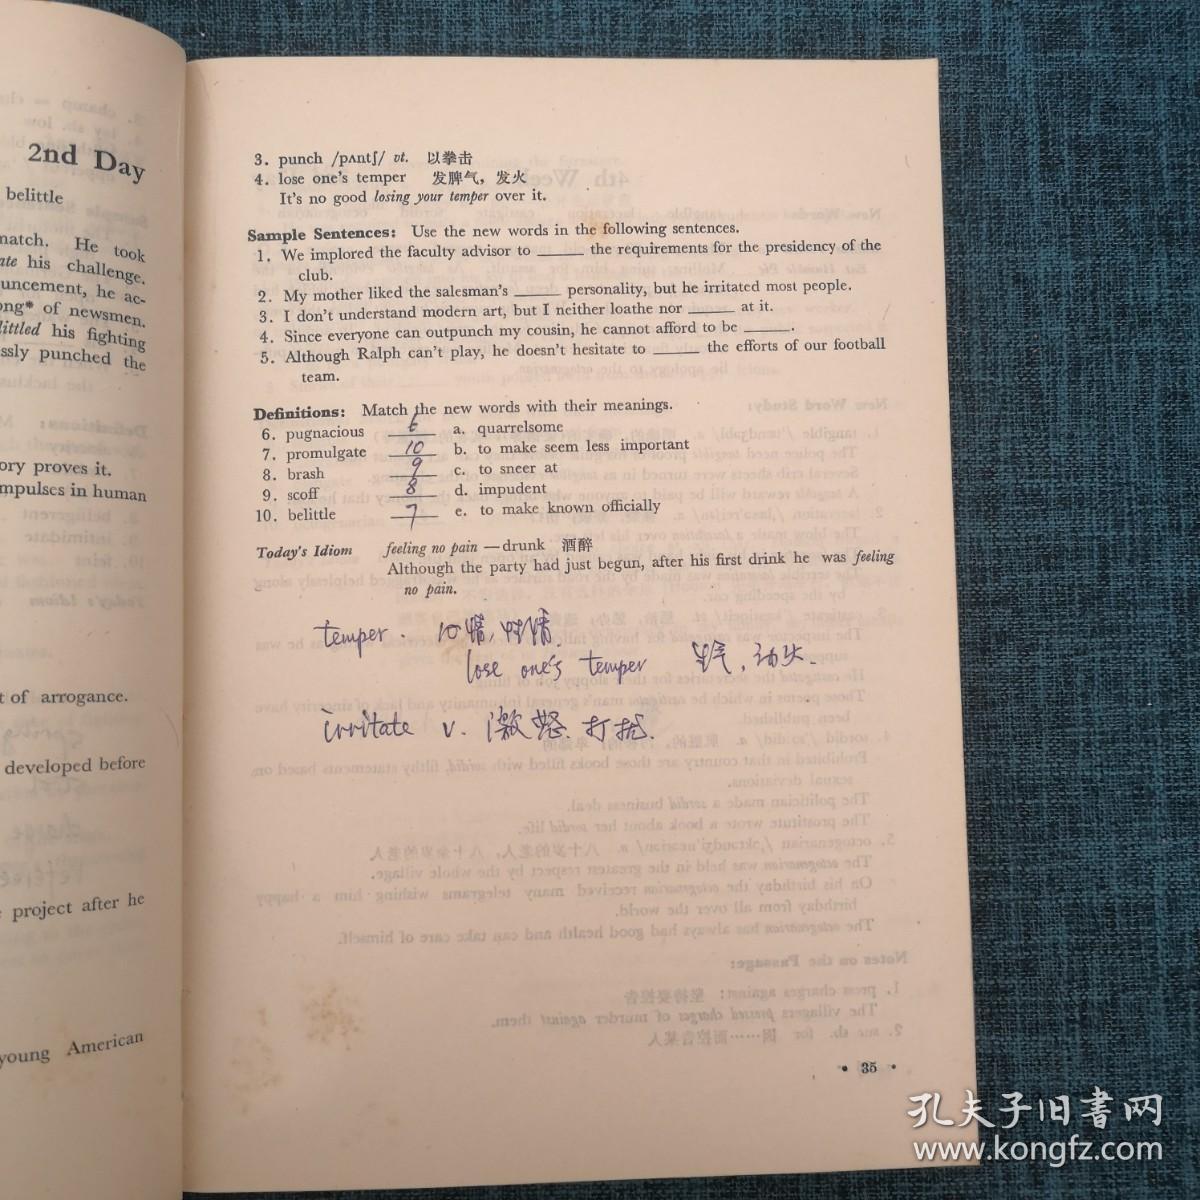 2nd Day
belittle
match. He took
ate his challenge.
uncement, he ac-
ong* of newsmen.
littled his fighting
ssly punched the
ory proves it.
mpulses in human
t of arrogance.
developed before
project after he
young American
3. punch /pʌntʃ/ vt. 以拳击
4. lose one's temper 发脾气，发火
It's no good losing your temper over it.
Sample Sentences: Use the new words in the following sentences.
1. We implored the faculty advisor to ______ the requirements for the presidency of the
club.
2. My mother liked the salesman's ______ personality, but he irritated most people.
3. I don't understand modern art, but I neither loathe nor ______ at it.
4. Since everyone can outpunch my cousin, he cannot afford to be ______.
5. Although Ralph can't play, he doesn't hesitate to ______ the efforts of our football
team.
Definitions: Match the new words with their meanings.
6. pugnacious 6 a. quarrelsome
7. promulgate 10 b. to make seem less important
8. brash 9 c. to sneer at
9. scoff 8 d. impudent
10. belittle 7 e. to make known officially
Today's Idiom feeling no pain — drunk 酒醉
Although the party had just begun, after his first drink he was feeling
no pain.
temper. 心情，性情.
lose one's temper 生气，动火.
irritate v. 激怒. 打扰.
• 35 •
孔夫子旧书网
www.kongfz.com